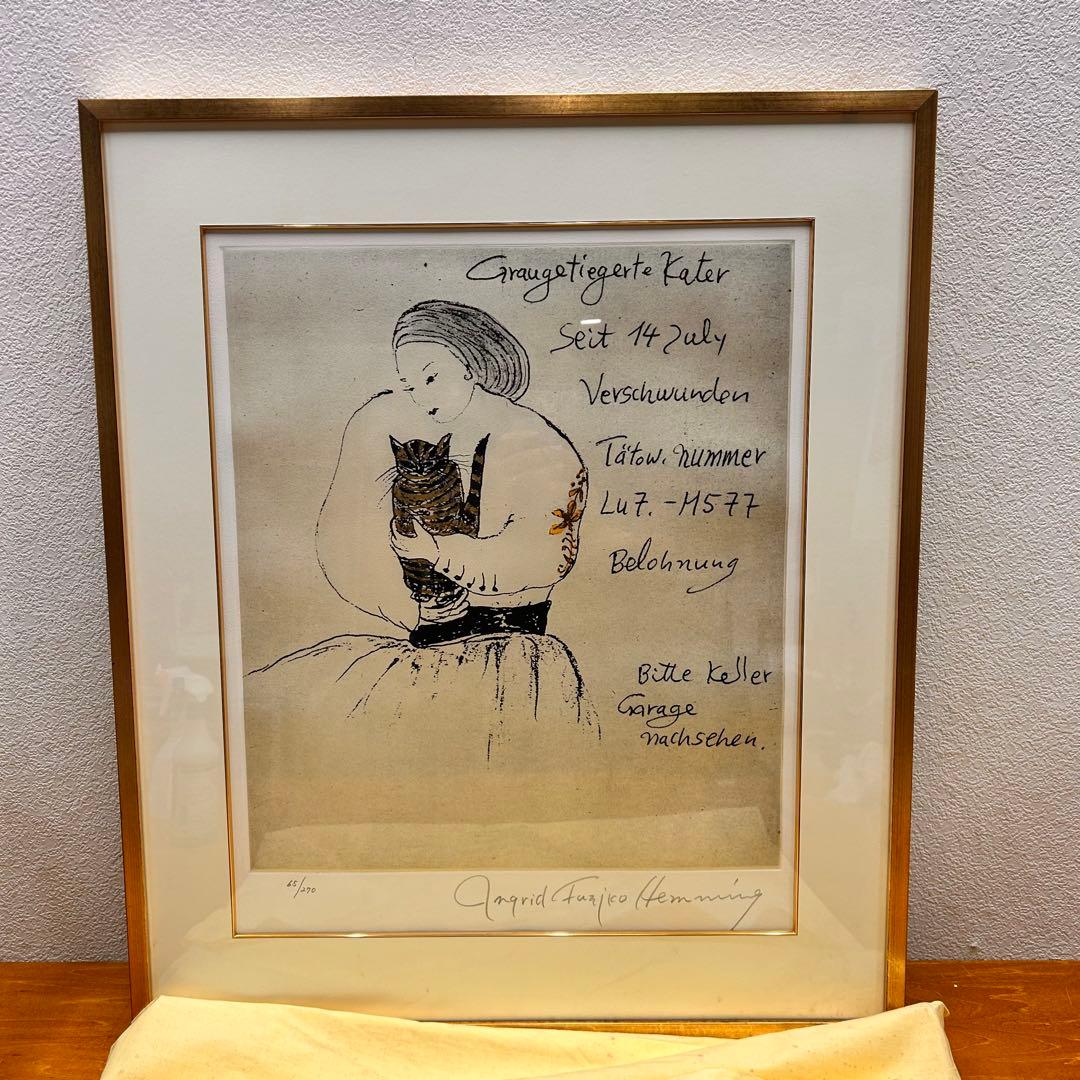 Graugetiegerte Kater
Seit 14 July
Verschwunden
Tätow. nummer
Lu7. - M577
Belohnung
Bitte Keller
Garage
nachsehen.
65/270
Ingrid Fuzjko Hemming